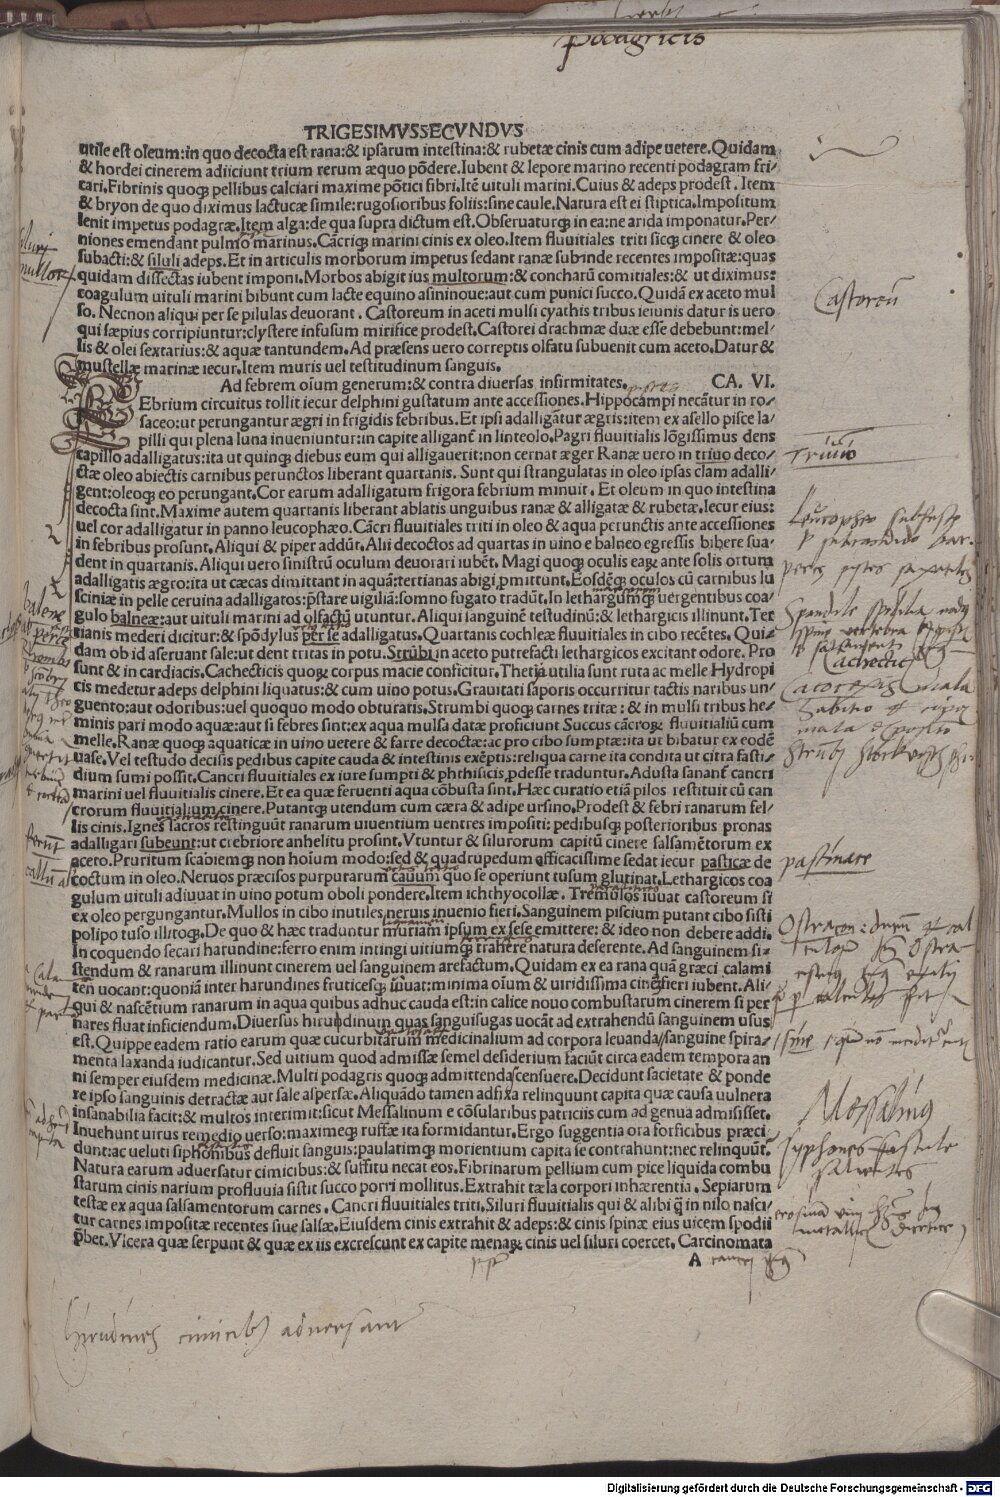 podagricis
TRIGESIMVSSECVNDVS
utile est oleum:in quo decocta est rana:& ipsarum intestina:& rubetæ cinis cum adipe uetere.Quidam
& hordei cinerem adiiciunt trium rerum æquo põdere.Iubent & lepore marino recenti podagram fri/
cari.Fibrinis quoq; pellibus calciari maxime põtici fibri.Itẽ uituli marini.Cuius & adeps prodest. Item
& bryon de quo diximus lactucæ simile:rugosioribus foliis:sine caule.Natura est ei stiptica.Impositum
lenit impetus podagræ.Item alga:de qua supra dictum est.Obseruaturq; in ea:ne arida imponatur.Per/
niones emendant pulmo marinus.Cãcriq; marini cinis ex oleo.Item fluuitiales triti sicq; cinere & oleo
subacti:& siluli adeps.Et in articulis morborum impetus sedant ranæ subinde recentes impositæ:quas
quidam dissectas iubent imponi.Morbos abigit ius multorum:& concharũ comitiales:& ut diximus:
coagulum uituli marini bibunt cum lacte equino asininoue:aut cum punici succo.Quidã ex aceto mul
so.Necnon aliqui per se pilulas deuorant. Castoreum in aceti mulsi cyathis tribus ieiunis datur is uero
qui sæpius corripiuntur:clystere infusum mirifice prodest.Castorei drachmæ duæ esse debebunt:mel/
lis & olei sextarius:& aquæ tantundem.Ad præsens uero correptis olfatu subuenit cum aceto.Datur &
mustellæ marinæ iecur.Item muris uel testudinum sanguis.
Castoreũ
Ad febrem oium generum:& contra diuersas infirmitates. CA. VI.
Ebrium circuitus tollit iecur delphini gustatum ante accessiones.Hippocampi necãtur in ro/
saceo:ut perungantur ægri in frigidis febribus. Et ipsi adalligãtur ægris:item ex asello pisce la/
pilli qui plena luna inueniuntur:in capite alligant in linteolo.Pagri fluuitialis lõgissimus dens
capillo adalligatus:ita ut quinq; diebus eum qui alligauerit:non cernat æger Ranæ uero in triuo deco/
ctæ oleo abiectis carnibus perunctos liberant quartanis. Sunt qui strangulatas in oleo ipsas clam adalli/
gent:oleoq; eo perungant.Cor earum adalligatum frigora febrium minuit. Et oleum in quo intestina
decocta sint.Maxime autem quartanis liberant ablatis unguibus ranæ & alligatæ & rubetæ.Iecur eius:
uel cor adalligatur in panno leucophæo.Cãcri fluuitiales triti in oleo & aqua perunctis ante accessiones
in febribus prosunt.Aliqui & piper addũt.Alii decoctos ad quartas in uino e balneo egressis bibere sua/
dent in quartanis.Aliqui uero sinistrũ oculum deuorari iubẽt. Magi quoq; oculis eaꝝ ante solis ortum
adalligatis ægro:ita ut cæcas dimittant in aquã:tertianas abigi ꝓmittunt.Eosdẽq; oculos cũ carnibus lu
sciniæ in pelle ceruina adalligatos:p̃stare uigiliã:somno fugato tradũt.In lethargumq; uergentibus coa/
gulo balneæ:aut uituli marini ad olfactũ utuntur. Aliqui sanguinẽ testudinũ:& lethargicis illinunt.Ter
tianis mederi dicitur:& spõdylus per se adalligatus.Quartanis cochleæ fluuitiales in cibo recẽtes. Qui/
dam ob id aseruant sale:ut dent tritas in potu. Strũbi in aceto putrefacti lethargicos excitant odore. Pro
sunt & in cardiacis.Cachecticis quoꝝ corpus macie conficitur.Thetia utilia sunt ruta ac melle Hydropi
cis medetur adeps delphini liquatus:& cum uino potus.Grauitati saporis occurritur tactis naribus un/
guento:aut odoribus:uel quoquo modo obturatis.Strumbi quoq; carnes tritæ:& in mulsi tribus he/
minis pari modo aquæ:aut si febres sint:ex aqua mulsa datæ proficiunt Succus cãcroꝝ fluuitialiũ cum
melle.Ranæ quoq; aquaticæ in uino uetere & farre decoctæ:ac pro cibo sumptæ:ita ut bibatur ex eodẽ
uase.Vel testudo decisis pedibus capite cauda & intestinis exẽptis:reliqua carne ita condita ut citra fasti/
dium sumi possit. Cancri fluuitiales ex iure sumpti & phthisicis ꝓdesse traduntur. Adusta sanant cancri
marini uel fluuitialis cinere. Et ea quæ feruenti aqua cõbusta sint.Hæc curatio etiã pilos restituit cũ can
crorum fluuitialium cinere.Putantq; utendum cum cæra & adipe ursino.Prodest & febri ranarum fel/
lis cinis.Ignes sacros restinguũt ranarum uiuentium uentres impositi: pedibusq; posterioribus pronas
adalligari subeunt:ut crebriore anhelitu prosint.Vtuntur & silurorum capitũ cinere salsamẽtorum ex
aceto.Pruritum scabiemq; non hoium modo:sed & quadrupedum efficacissime sedat iecur pasticæ de
coctum in oleo.Neruos præcisos purpurarum cauum quo se operiunt tusum glutinat.Lethargicos coa
gulum uituli adiuuat in uino potum oboli pondere.Item ichthyocollæ. Tremulos iuuat castoreum si
ex oleo pergungantur.Mullos in cibo inutiles neruis inuenio fieri.Sanguinem piscium putant cibo sisti
polipo tuso illitoq;.De quo & hæc traduntur muriam ipsum ex sese emittere:& ideo non debere addi.
In coquendo secari harundine:ferro enim intingi uitiumq; trahere natura deserente. Ad sanguinem si/
stendum & ranarum illinunt cinerem uel sanguinem arefactum.Quidam ex ea rana quã græci calami
ten uocant:quoniã inter harundines fruticesq; iuuat:minima oium & uiridissima cinẽ fieri iubent.Ali/
qui & nascẽtium ranarum in aqua quibus adhuc cauda est:in calice nouo combustarum cinerem si per
nares fluat inficiendum.Diuersus hirudinum quas sanguisugas uocãt ad extrahendũ sanguinem usus
est.Quippe eadem ratio earum quæ cucurbitarum medicinalium ad corpora leuanda/sanguine spira/
menta laxanda iudicantur. Sed uitium quod admissæ semel desiderium faciũt circa eadem tempora an
ni semper eiusdem medicinæ. Multi podagris quoq; admittendas censuere.Decidunt sacietate & ponde
re ipso sanguinis detractæ aut sale aspersæ. Aliquãdo tamen adfixa relinquunt capita quæ causa uulnera
insanabilia facit:& multos interimit:sicut Messalinum e cõsularibus patriciis cum ad genua admisisset.
Inuehunt uirus remedio uerso:maximeq; ruffæ ita formidantur. Ergo suggentia ora forficibus præci/
dunt:ac ueluti siphonibus defluit sanguis:paulatimq; morientium capita se contrahunt:nec relinquũt.
Natura earum aduersatur cimicibus:& suffitu necat eos.Fibrinarum pellium cum pice liquida combu
starum cinis narium profluuia sistit succo porri mollitus. Extrahit tæla corpori inhærentia. Sepiarum
testæ ex aqua salsamentorum carnes. Cancri fluuitiales triti. Siluri fluuitialis qui & alibi q̃ in nilo nasci/
tur carnes impositæ recentes siue salsæ.Eiusdem cinis extrahit & adeps:& cinis spinæ eius uicem spodii
p̃bet.Vicera quæ serpunt & quæ ex iis excrescunt ex capite menaꝝ cinis uel siluri coercet. Carcinomata
A
Triuio
pastinace
Messalinus
hirudines cimicibus adversant
Digitalisierung gefördert durch die Deutsche Forschungsgemeinschaft - DFG